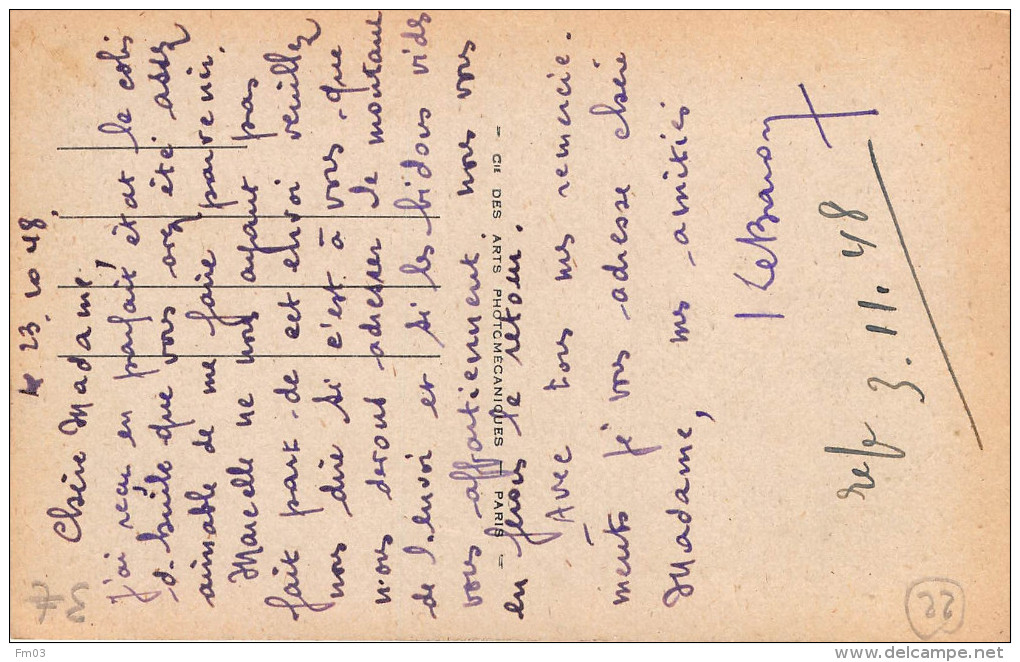 le 23.10.48.
Chère Madame!
J'ai reçu en parfait état le colis
d. huile que vous avez été assez
aimable de me faire parvenir.
Marcelle ne nous ayant pas
fait part de cet envoi veuillez
nous dire si c'est à vous que
nous devons adresser le montant
de l'envoi et si les bidons vides
vous appartiennent nous vous
en ferons le retour.
Avec tous mes remercie.
ments je vous adresse chère
Madame, mes amitiés
LeBaron
3.11.48
— CIE DES ARTS PHOTOMÉCANIQUES — PARIS —
22
Fm03
www.delcampe.net